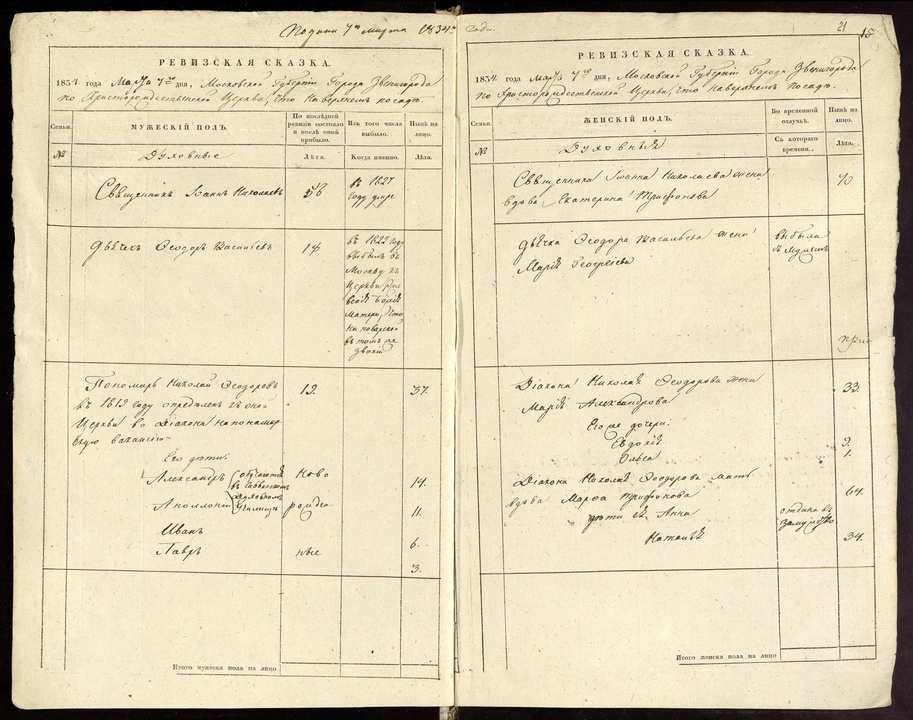 Подана 7го марта 1834го года.
РЕВИЗСКАЯ СКАЗКА.
1834 года Марта 7го дня, Московской Губерніи Города Звенигорода
по Христорождественской Церкви, что на верхнем посаде.
Семьи.
МУЖЕСКІЙ ПОЛЪ.
По послѣдней
ревизіи состояло
и послѣ оной
прибыло.
Изъ того числа
выбыло.
Нынѣ на
лицо.
№
Духовные
Лѣта.
Когда именно.
Лѣта.
Священникъ Іоаннъ Николаевъ
въ 1827
году умре
Дьячекъ Ѳеодоръ Васильевъ
въ 1822 году
выбылъ въ
Москву къ
Церкви
Божіей
Матери, что
на поварской
въ томъ же
званіи
Пономарь Николай Ѳеодоровъ
13.
37.
въ 1819 году опредѣленъ къ оной
Церкви во Діакона на понамар
скую вакансію
Его дѣти:
Александръ
обучаются
въ
Духовномъ
Училищѣ
Ново
14.
Аполлоній
рожден
11.
Иванъ
6.
Лавръ
ные
3.
Итого мужеска пола на лицо
21
15
РЕВИЗСКАЯ СКАЗКА.
1834 года Марта 7го дня, Московской Губерніи Города Звенигорода
по Христорождественской Церкви, что на верхнемъ посадѣ.
Семьи.
ЖЕНСКІЙ ПОЛЪ.
Во временной
отлучкѣ.
Нынѣ на
лицо.
№
Духовныя
Съ котораго
времени.
Лѣта.
Священника Іоанна Николаева жена
70
вдова Екатерина Трифонова
Дьячка Ѳеодора Васильева жена
выбыла
съ мужемъ
Марія Георгіева
Діакона Николая Ѳеодорова жена
33.
Марія Александрова
Его же дочери.
Евдокія
9.
Ольга
1.
Діакона Николая Ѳеодорова мать
64.
вдова Марѳа Трифонова
дѣти ея Анна
отдана въ
замужство
Наталья
34.
Итого женска пола на лицо